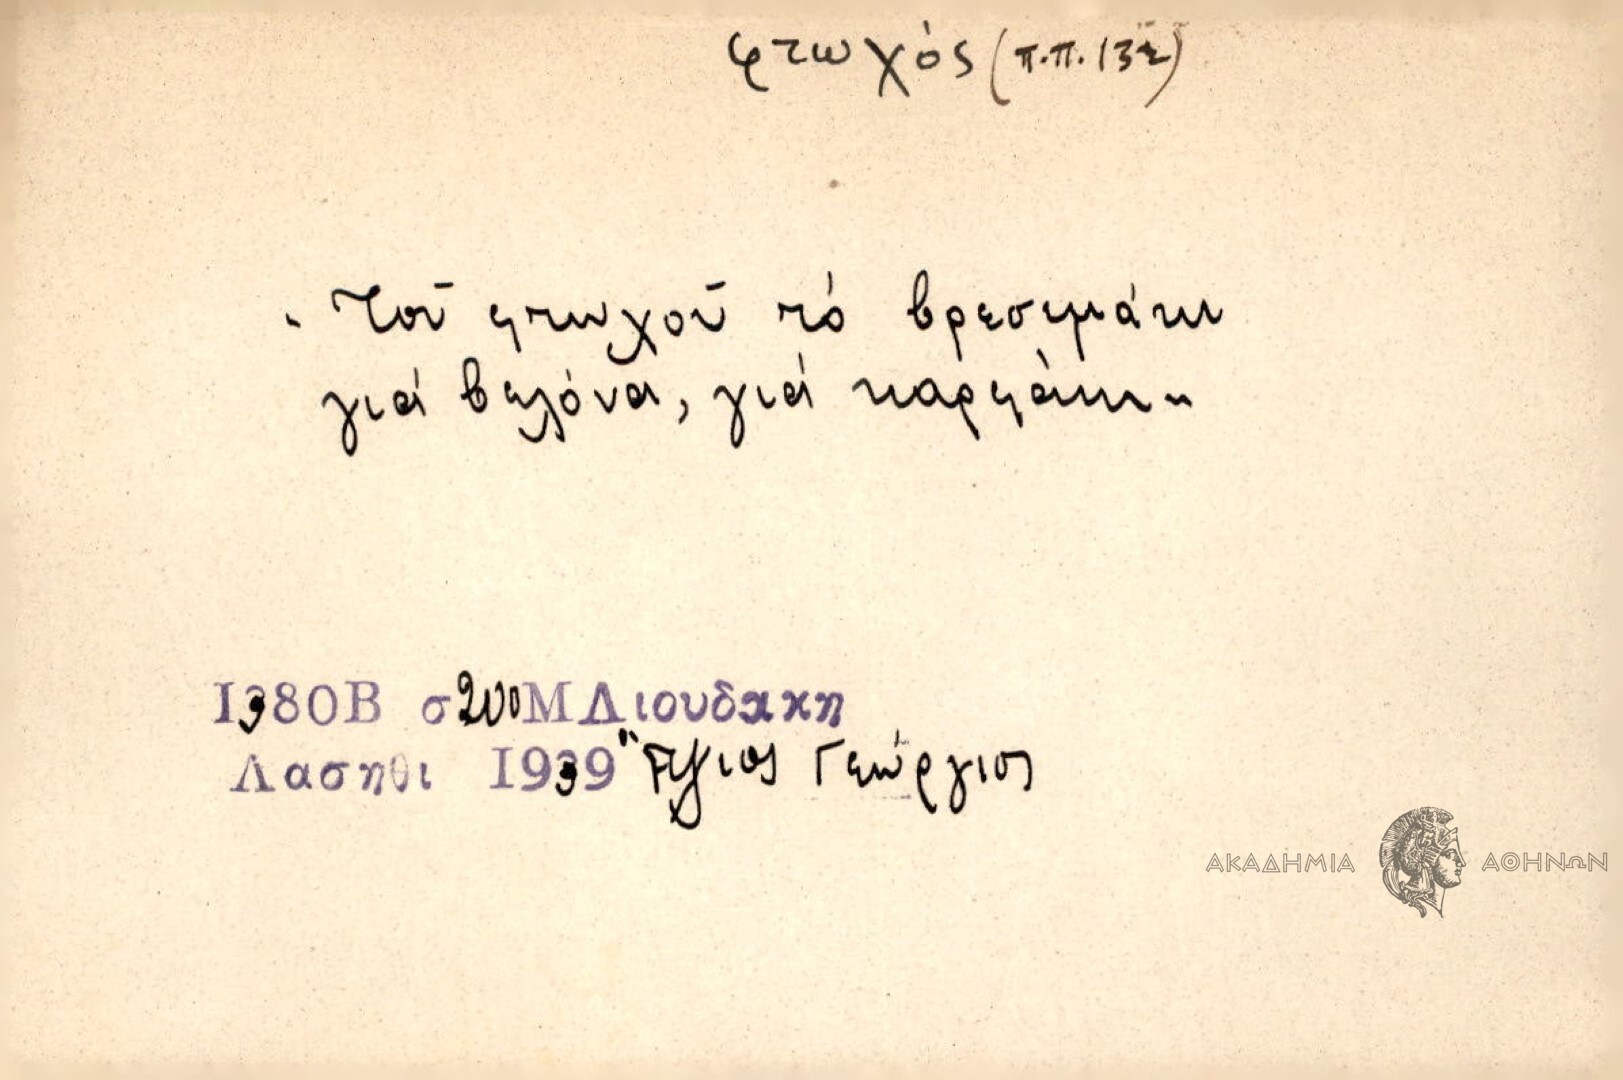 φτωχός (π.π. 132)
"Τοῦ φτωχοῦ τό βρεσεμάτι
γιά βελόνα, γιά καρφάκι"
1380Β σ 200 Μ Διουδακη
Λασηθι 1939 Ἅγιος Γεώργιος
ΑΚΑΔΗΜΙΑ ΑΘΗΝΩΝ